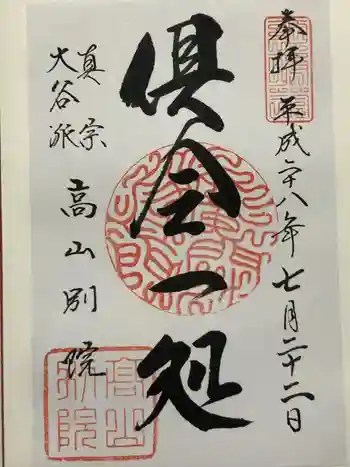 奉拝 平成二十八年七月二十二日
俱会一処
真宗
大谷派
高山別院
高山
別院